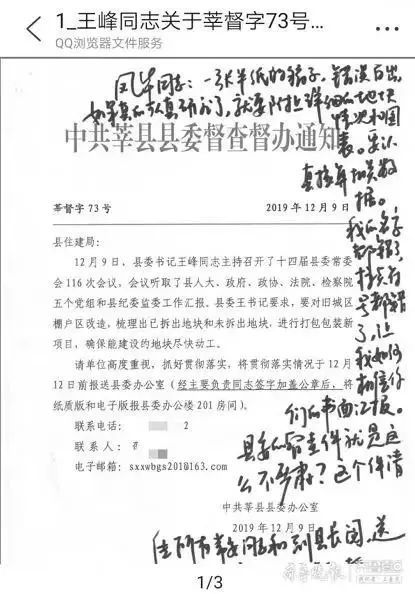 1_王峰同志关于莘督字73号...
QQ浏览器文件服务
同志：一张半纸的稿子，错误百出，
如果真的认真研究了，就要附上详细的地块
情况和图表。要认
真核算相关数
据。
我的名字
都错了，
标点符
号都错
了，让
我如何
相信你
们的书面汇报。
县委的督查件就是这
么不严肃？这个件请
中共莘县县委督查督办通知
莘督字73号
2019年12月9日
县住建局：
12月9日，县委书记王峰同志主持召开了十四届县委常委
会116次会议，会议听取了县人大、政府、政协、法院、检察院
五个党组和县纪委监委工作汇报。县委王书记要求，要对旧城区
棚户区改造，梳理出已拆出地块和未拆出地块，进行打包包装新
项目，确保能建设的地块尽快动工。
请单位高度重视，抓好贯彻落实，将贯彻落实情况于12月
12日前报送县委办公室（经主要负责同志签字加盖公章后，将
纸质版和电子版报县委办公楼201房间）。
联系电话： 2
联系人：
电子邮箱：sxxwbgs2010@163.com
中共莘县县委办公室
2019年12月9日
同志和副县长阅，送
齐鲁晚报
1/3